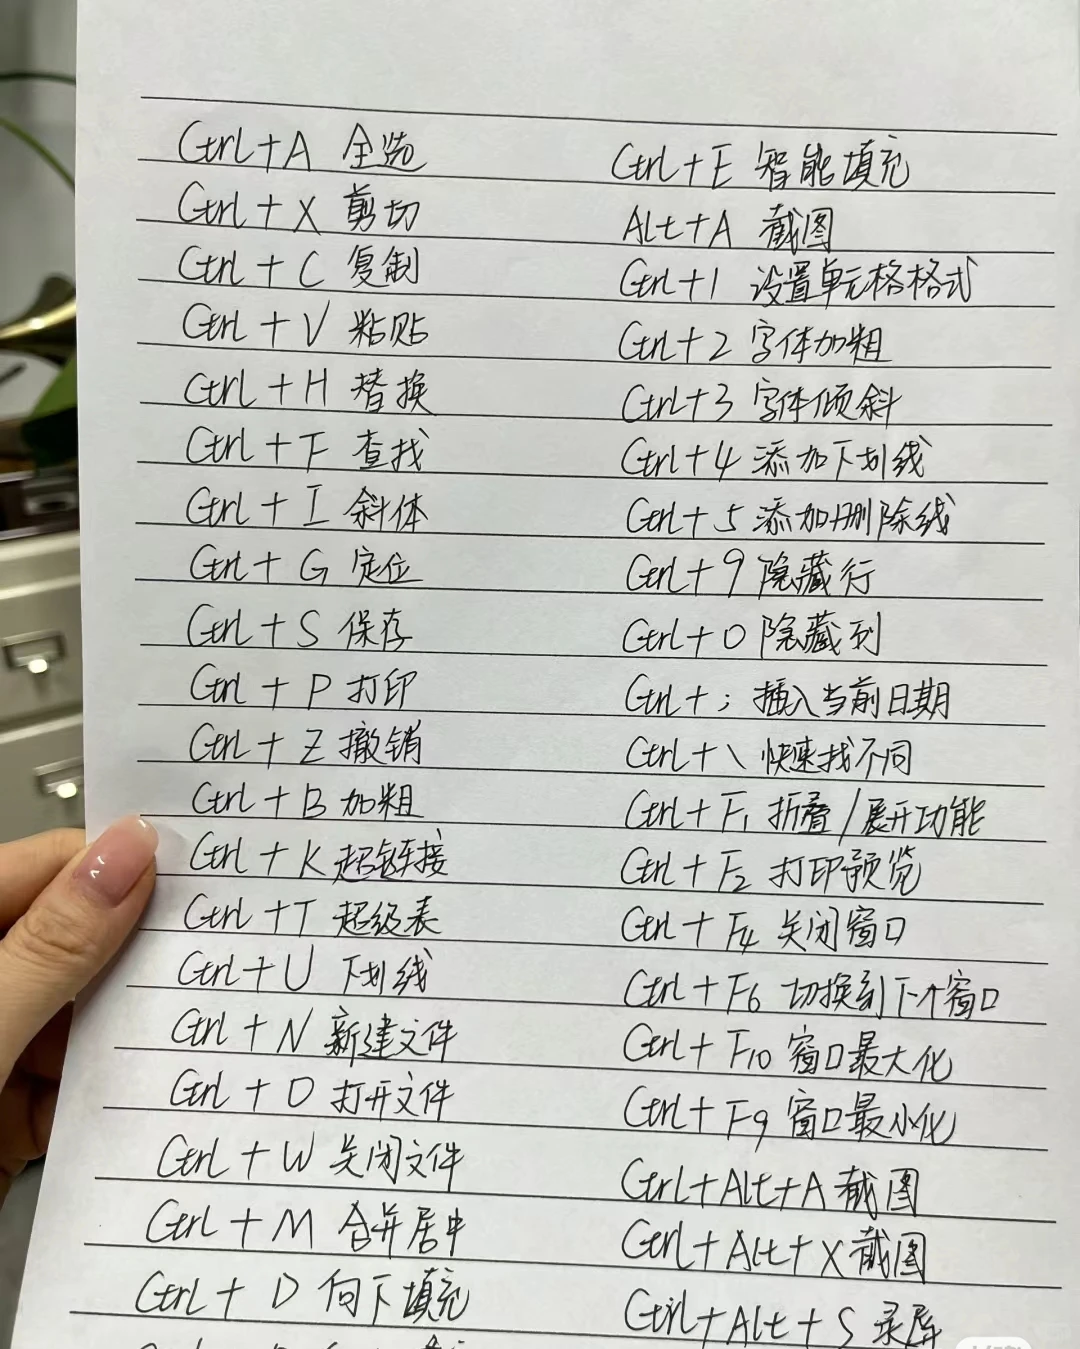 Ctrl+A 全选
Ctrl+X 剪切
Ctrl+C 复制
Ctrl+V 粘贴
Ctrl+H 替换
Ctrl+F 查找
Ctrl+I 斜体
Ctrl+G 定位
Ctrl+S 保存
Ctrl+P 打印
Ctrl+Z 撤销
Ctrl+B 加粗
Ctrl+K 超链接
Ctrl+T 超级表
Ctrl+U 下划线
Ctrl+N 新建文件
Ctrl+O 打开文件
Ctrl+W 关闭文件
Ctrl+M 合并居中
Ctrl+D 向下填充
Ctrl+E 智能填充
Alt+A 截图
Ctrl+1 设置单元格格式
Ctrl+2 字体加粗
Ctrl+3 字体倾斜
Ctrl+4 添加下划线
Ctrl+5 添加删除线
Ctrl+9 隐藏行
Ctrl+0 隐藏列
Ctrl+; 插入当前日期
Ctrl+\ 快速找不同
Ctrl+F1 折叠/展开功能
Ctrl+F2 打印预览
Ctrl+F4 关闭窗口
Ctrl+F6 切换到下个窗口
Ctrl+F10 窗口最大化
Ctrl+F9 窗口最小化
Ctrl+Alt+A 截图
Ctrl+Alt+X 截图
Ctrl+Alt+S 录屏